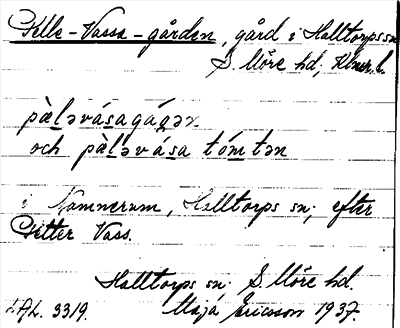 Pelle-Vassa-gården, gård i Halltorps sn
S. Möre hd, Klmr. l.
pàləvásagáɡən
och pàləvása tómtən
i Namnerum, Halltorps sn; efter
Petter Vass.
Halltorps sn. S. Möre hd.
LAL. 3319. Maja Ericsson 1937.